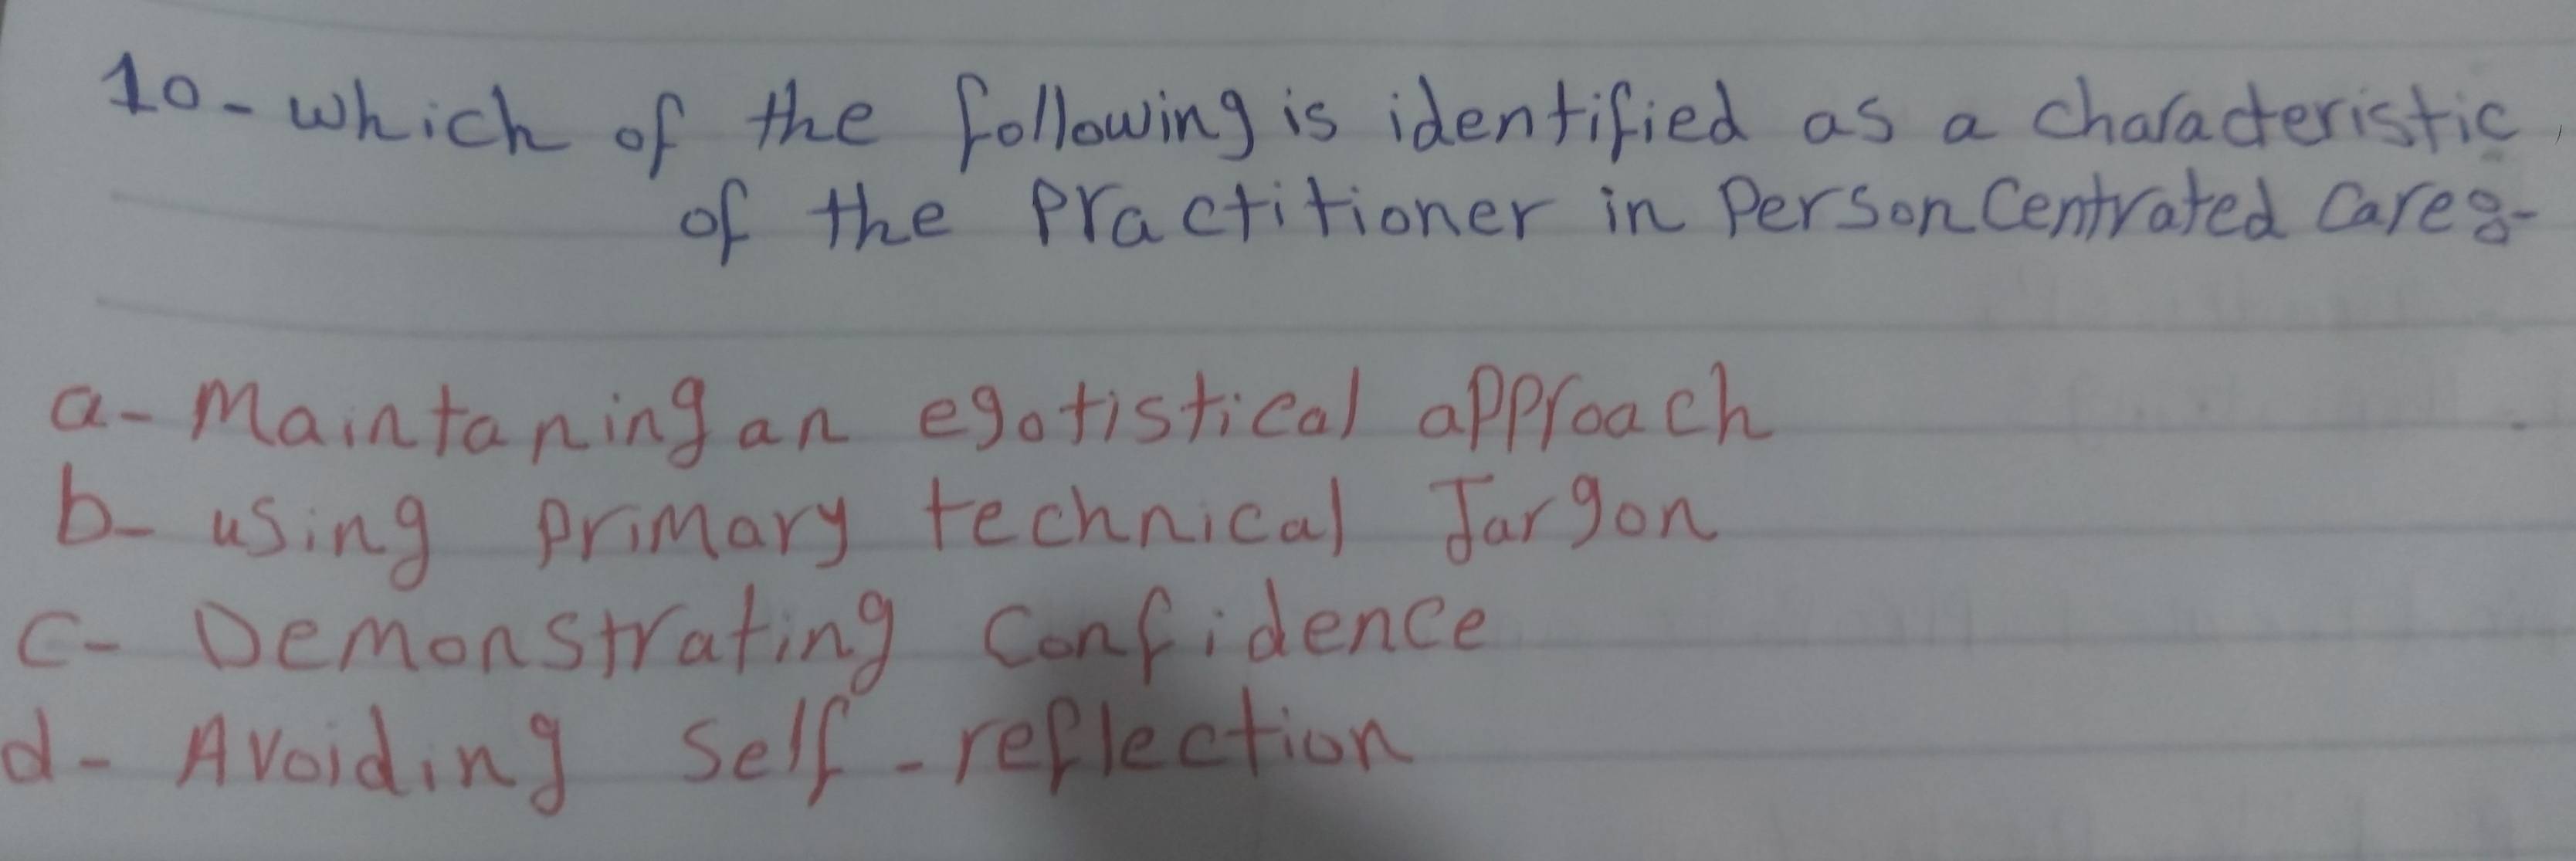 10- which of the following is identified as a characteristic
of the practitioner in person Centrated Care:-
a- Maintaning an egotistical approach
b- using primary technical Jargon
c- Demonstrating Confidence
d- Avoiding self-reflection